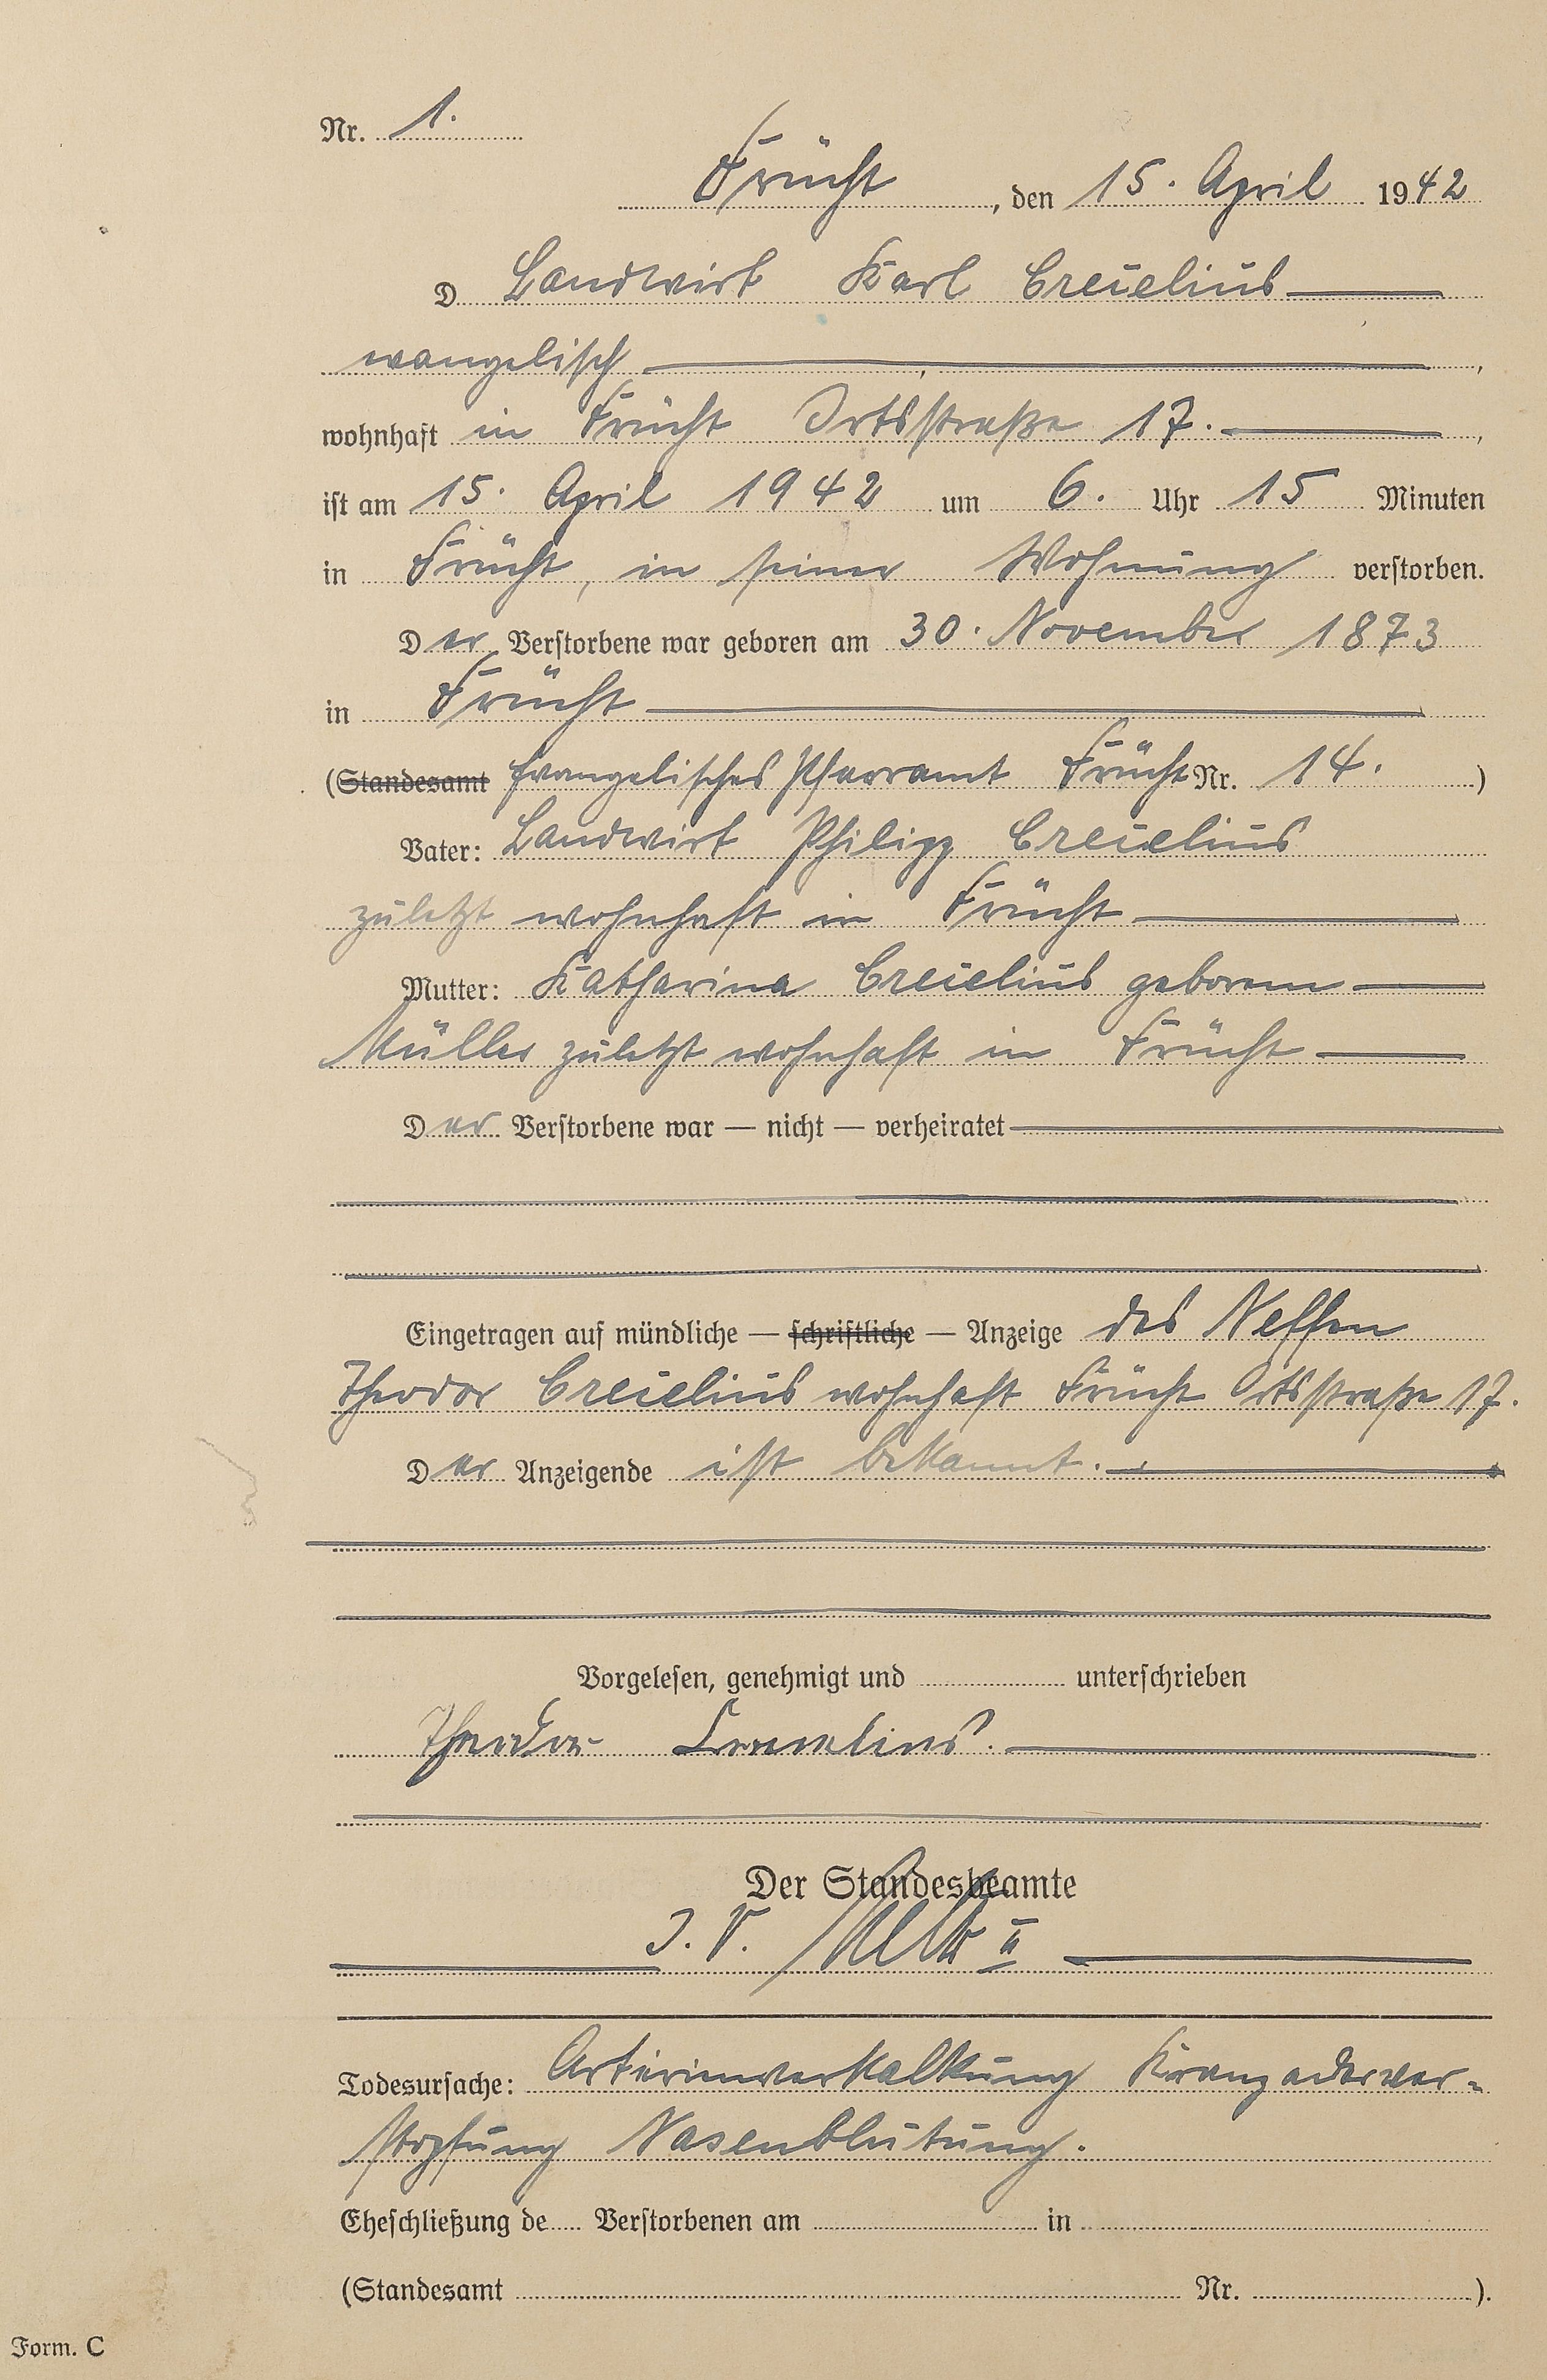 Nr. 1.
Frücht, den 15. April 1942
D Landwirt Karl Creuelius
evangelisch,
wohnhaft in Frücht Ortsstraße 17.,
ist am 15. April 1942 um 6. Uhr 15 Minuten
in Frücht, in seiner Wohnung verstorben.
Der Verstorbene war geboren am 30. November 1873
in Frücht
(Standesamt Evangelisches Pfarramt Frücht Nr. 14.)
Vater: Landwirt Philipp Creuelius
zuletzt wohnhaft in Frücht
Mutter: Katharina Creuelius geborene
Müller zuletzt wohnhaft in Frücht
Der Verstorbene war — nicht — verheiratet
Eingetragen auf mündliche — schriftliche — Anzeige des Neffen
Theodor Creuelius wohnhaft Frücht Ortsstraße 17.
Der Anzeigende ist bekannt.
Vorgelesen, genehmigt und unterschrieben
Theodor Creuelius.
Der Standesbeamte
I. V. II
Todesursache: Arterienverkalkung Kranzaderver-
stopfung Nasenblutung.
Eheschließung de Verstorbenen am in
(Standesamt Nr. ).
Form. C